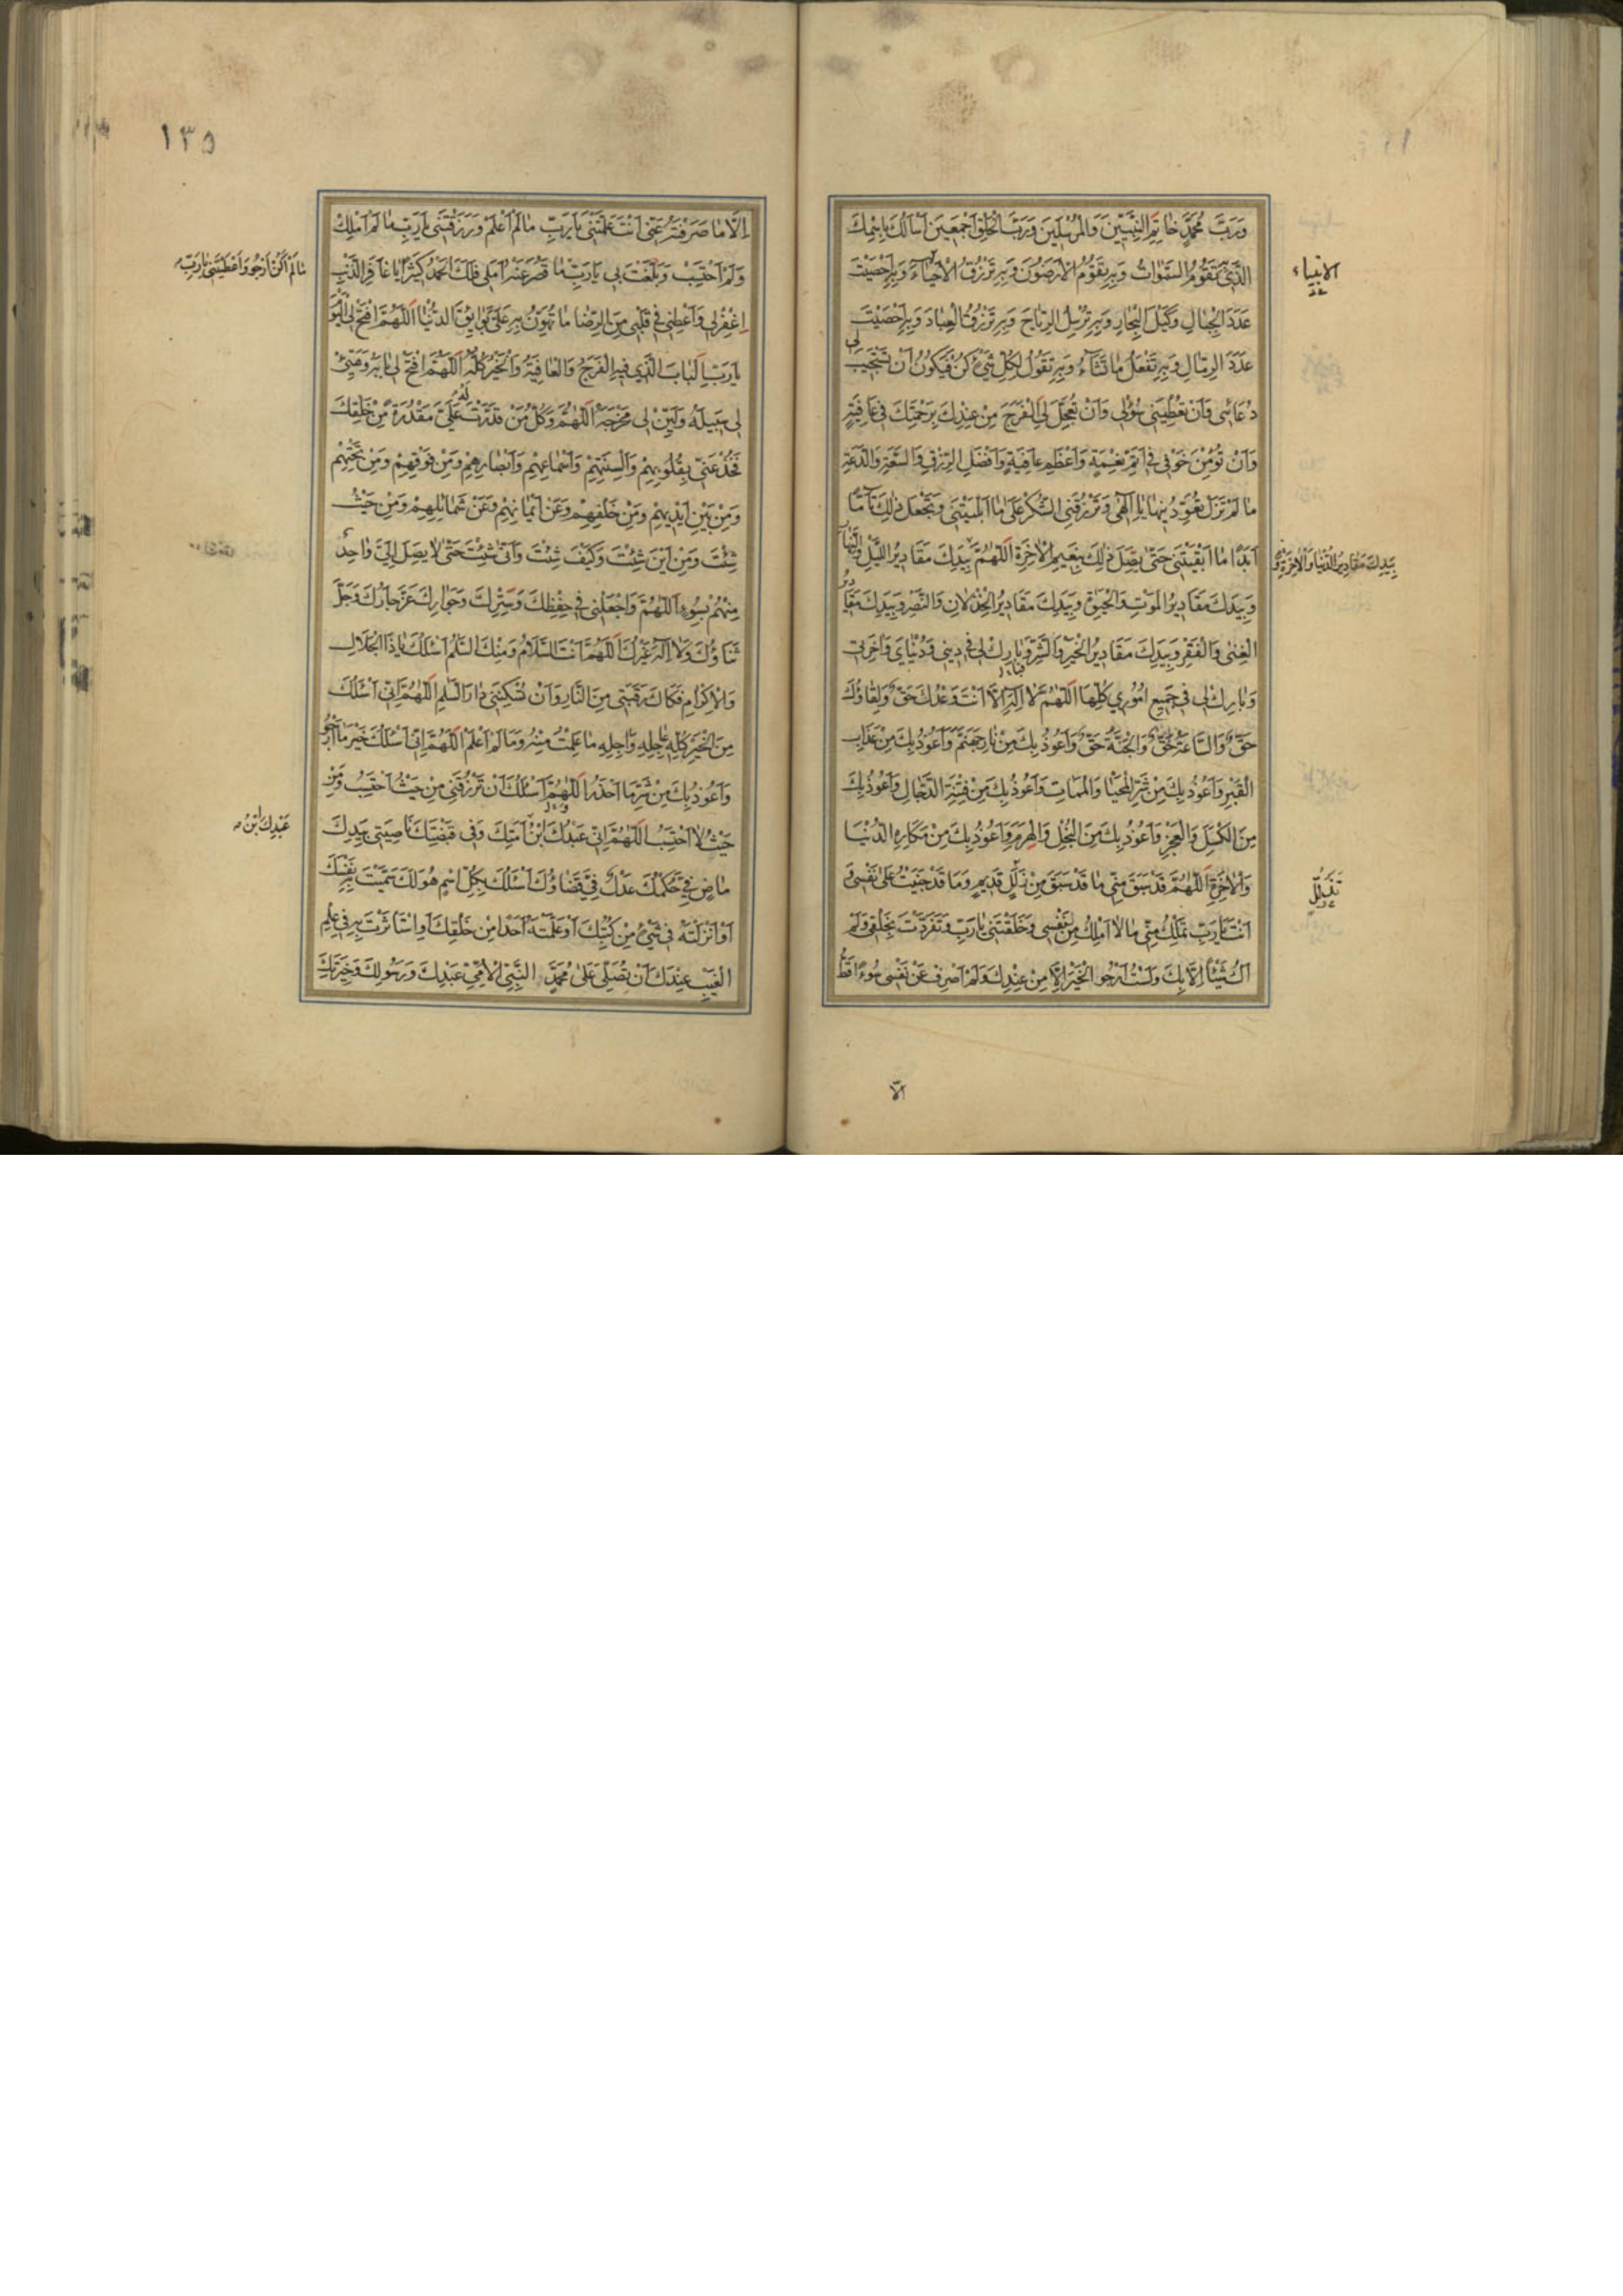 وَرَبَّ مُحَمَّدٍ خاتِمِ النَّبِيّينَ وَالمُرسَلينَ وَرَبَّ الخَلقِ اَجمَعينَ اَسأَلُكَ بِاسمِكَ
الَّذي بِهِ تَقُومُ السَّمٰواتُ وَبِهِ تَقُومُ الاَرَضُونَ وَبِهِ تَرزُقُ الاَحياءَ وَبِهِ اَحصَيتَ
الانبياء
عَدَدَ الجِبالِ وَكَيلَ البِحارِ وَبِهِ تُرسِلُ الرِّياحَ وَبِهِ تَرزُقُ العِبادَ وَبِهِ اَحصَيتَ
عَدَدَ الرِّمالِ وَبِهِ تَفعَلُ ما تَشاءُ وَبِهِ تَقُولُ لِكُلِّ شَيءٍ كُن فَيَكُونُ اَن تَستَجيبَ لي
دُعائي وَاَن تُعطِيَني سُؤلي وَاَن تُعَجِّلَ لِيَ الفَرَجَ مِن عِندِكَ بِرَحمَتِكَ في عافِيَةٍ
وَاَن تُؤمِنَ خَوفي في اَتَمِّ نِعمَةٍ وَاَعظَمِ عافِيَةٍ وَاَفضَلِ الرِّزقِ وَالسَّعَةِ وَالدَّعَةِ
ما لَم تَزَل تُعَوِّدُنيها يا اِلٰهي وَتَرزُقَنِي الشُّكرَ عَلى ما اَبلَيتَني وَتَجعَلَ ذٰلِكَ تامًّا
اَبَدًا ما اَبقَيتَني حَتّى تَصِلَ ذٰلِكَ بِنَعيمِ الاٰخِرَةِ اَللّٰهُمَّ بِيَدِكَ مَقاديرُ اللَّيلِ وَالنَّهارِ
بِيَدِكَ مَقاديرُ الدُّنيا وَالاٰخِرَةِ وَ
وَبِيَدِكَ مَقاديرُ المَوتِ وَالحَيٰوةِ وَبِيَدِكَ مَقاديرُ الخِذلانِ وَالنَّصرِ وَبِيَدِكَ مَقاديرُ
الغِنى وَالفَقرِ وَبِيَدِكَ مَقاديرُ الخَيرِ وَالشَّرِّ وَبارِك لي في ديني وَدُنيايَ وَاٰخِرَتي
وَبارِك لي في جَميعِ اُمُوري كُلِّها اَللّٰهُمَّ لا اِلٰهَ اِلّا اَنتَ وَعدُكَ حَقٌّ وَلِقاؤُكَ
حَقٌّ وَالسّاعَةُ حَقٌّ وَالجَنَّةُ حَقٌّ وَاَعُوذُ بِكَ مِن نارِ جَهَنَّمَ وَاَعُوذُ بِكَ مِن عَذابِ
القَبرِ وَاَعُوذُ بِكَ مِن شَرِّ المَحيا وَالمَماتِ وَاَعُوذُ بِكَ مِن فِتنَةِ الدَّجّالِ وَاَعُوذُ بِكَ
مِنَ الكَسَلِ وَالعَجزِ وَاَعُوذُ بِكَ مِنَ البُخلِ وَالهَرَمِ وَاَعُوذُ بِكَ مِن مَكارِهِ الدُّنيا
وَالاٰخِرَةِ اَللّٰهُمَّ قَد سَبَقَ مِنّي ما قَد سَبَقَ مِن زَلَلٍ قَديمٍ وَما قَد جَنَيتُ عَلى نَفسي وَ
اَنتَ يا رَبِّ تَملِكُ مِنّي ما لا اَملِكُ مِن نَفسي وَخَلَقتَني يا رَبِّ وَتَفَرَّدتَ بِخَلقي وَلَم
اَكُ شَيئًا اِلّا بِكَ وَلَستُ اَرجُو الخَيرَ اِلّا مِن عِندِكَ وَلَم اَصرِف عَن نَفسي سُوءًا قَطُّ
الّا
١٣٥
اِلّا ما صَرَفتَهُ عَنّي اَنتَ عَلَّمتَني يا رَبِّ ما لَم اَعلَم وَرَزَقتَني يا رَبِّ ما لَم اَملِك
وَلَم اَحتَسِب وَبَلَغتَ بي يا رَبِّ ما قَصُرَ عَنهُ اَمَلي فَلَكَ الحَمدُ كَثيرًا يا غافِرَ الذَّنبِ
ما لَم اَكُن اَرجُو وَاَعطَيتَني يا رَبِّ
اِغفِر لي وَاَعطِني في قَلبي مِنَ الرِّضا ما تُهَوِّنُ بِهِ عَلَيَّ بَوائِقَ الدُّنيا اَللّٰهُمَّ افتَح لِيَ اليَومَ
يا رَبِّ البابَ الَّذي فيهِ الفَرَجُ وَالعافِيَةُ وَالخَيرُ كُلُّهُ اَللّٰهُمَّ افتَح لي بابَهُ وَهَيِّئ
لي سَبيلَهُ وَلَيِّن لي مَخرَجَهُ اَللّٰهُمَّ وَكُلُّ مَن قَدَّرتَ لَهُ عَلَيَّ مَقدُرَةً مِن خَلقِكَ
فَخُذ عَنّي بِقُلُوبِهِم وَاَلسِنَتِهِم وَاَسماعِهِم وَاَبصارِهِم وَمِن فَوقِهِم وَمِن تَحتِهِم
وَمِن بَينِ اَيديهِم وَمِن خَلفِهِم وَعَن اَيمانِهِم وَعَن شَمائِلِهِم وَمِن حَيثُ
شِئتَ وَمِن اَينَ شِئتَ وَكَيفَ شِئتَ وَاَنّى شِئتَ حَتّى لا يَصِلَ اِلَيَّ واحِدٌ
مِنهُم بِسُوءٍ اَللّٰهُمَّ وَاجعَلني في حِفظِكَ وَسِترِكَ وَجِوارِكَ عَزَّ جارُكَ وَجَلَّ
ثَناؤُكَ وَلا اِلٰهَ غَيرُكَ اَللّٰهُمَّ اَنتَ السَّلامُ وَمِنكَ السَّلٰمُ اَسئَلُكَ يا ذَا الجَلالِ
وَالاِكرامِ فَكاكَ رَقَبَتي مِنَ النّارِ وَاَن تُسكِنَني دارَ السَّلٰمِ اَللّٰهُمَّ اِنّي اَسئَلُكَ
مِنَ الخَيرِ كُلِّهِ عاجِلِهِ وَاٰجِلِهِ ما عَلِمتُ مِنهُ وَما لَم اَعلَم اَللّٰهُمَّ اِنّي اَسئَلُكَ خَيرَ ما اَرجُو
وَاَعُوذُ بِكَ مِن شَرِّ ما اَحذَرُ اَللّٰهُمَّ اَسئَلُكَ اَن تَرزُقَني مِن حَيثُ اَحتَسِبُ وَمِن
حَيثُ لا اَحتَسِبُ اَللّٰهُمَّ اِنّي عَبدُكَ ابنُ اَمَتِكَ وَفي قَبضَتِكَ ناصِيَتي بِيَدِكَ
عَبدِكَ ابنُ
ماضٍ فِيَّ حُكمُكَ عَدلٌ فِيَّ قَضاؤُكَ اَسئَلُكَ بِكُلِّ اسمٍ هُوَ لَكَ سَمَّيتَ بِهِ نَفسَكَ
اَو اَنزَلتَهُ في شَيءٍ مِن كُتُبِكَ اَو عَلَّمتَهُ اَحَدًا مِن خَلقِكَ اَوِ استَأثَرتَ بِهِ في عِلمِ
الغَيبِ عِندَكَ اَن تُصَلِّيَ عَلى مُحَمَّدٍ النَّبِيِّ الاُمِّيِّ عَبدِكَ وَرَسُولِكَ وَخِيَرَتِكَ